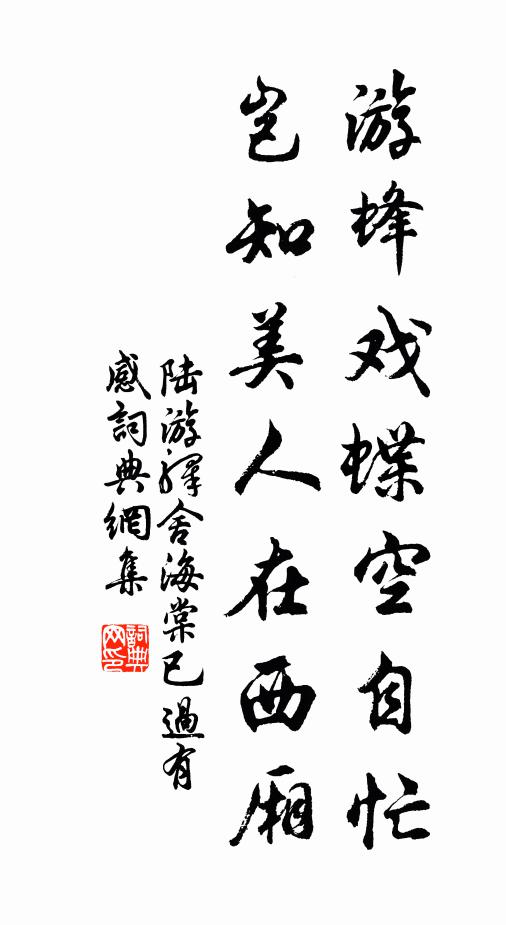 游蜂戏蝶空自忙
岂知美人在西厢
陆游驿舍海棠已過有
感詞典網集
詞典
网印